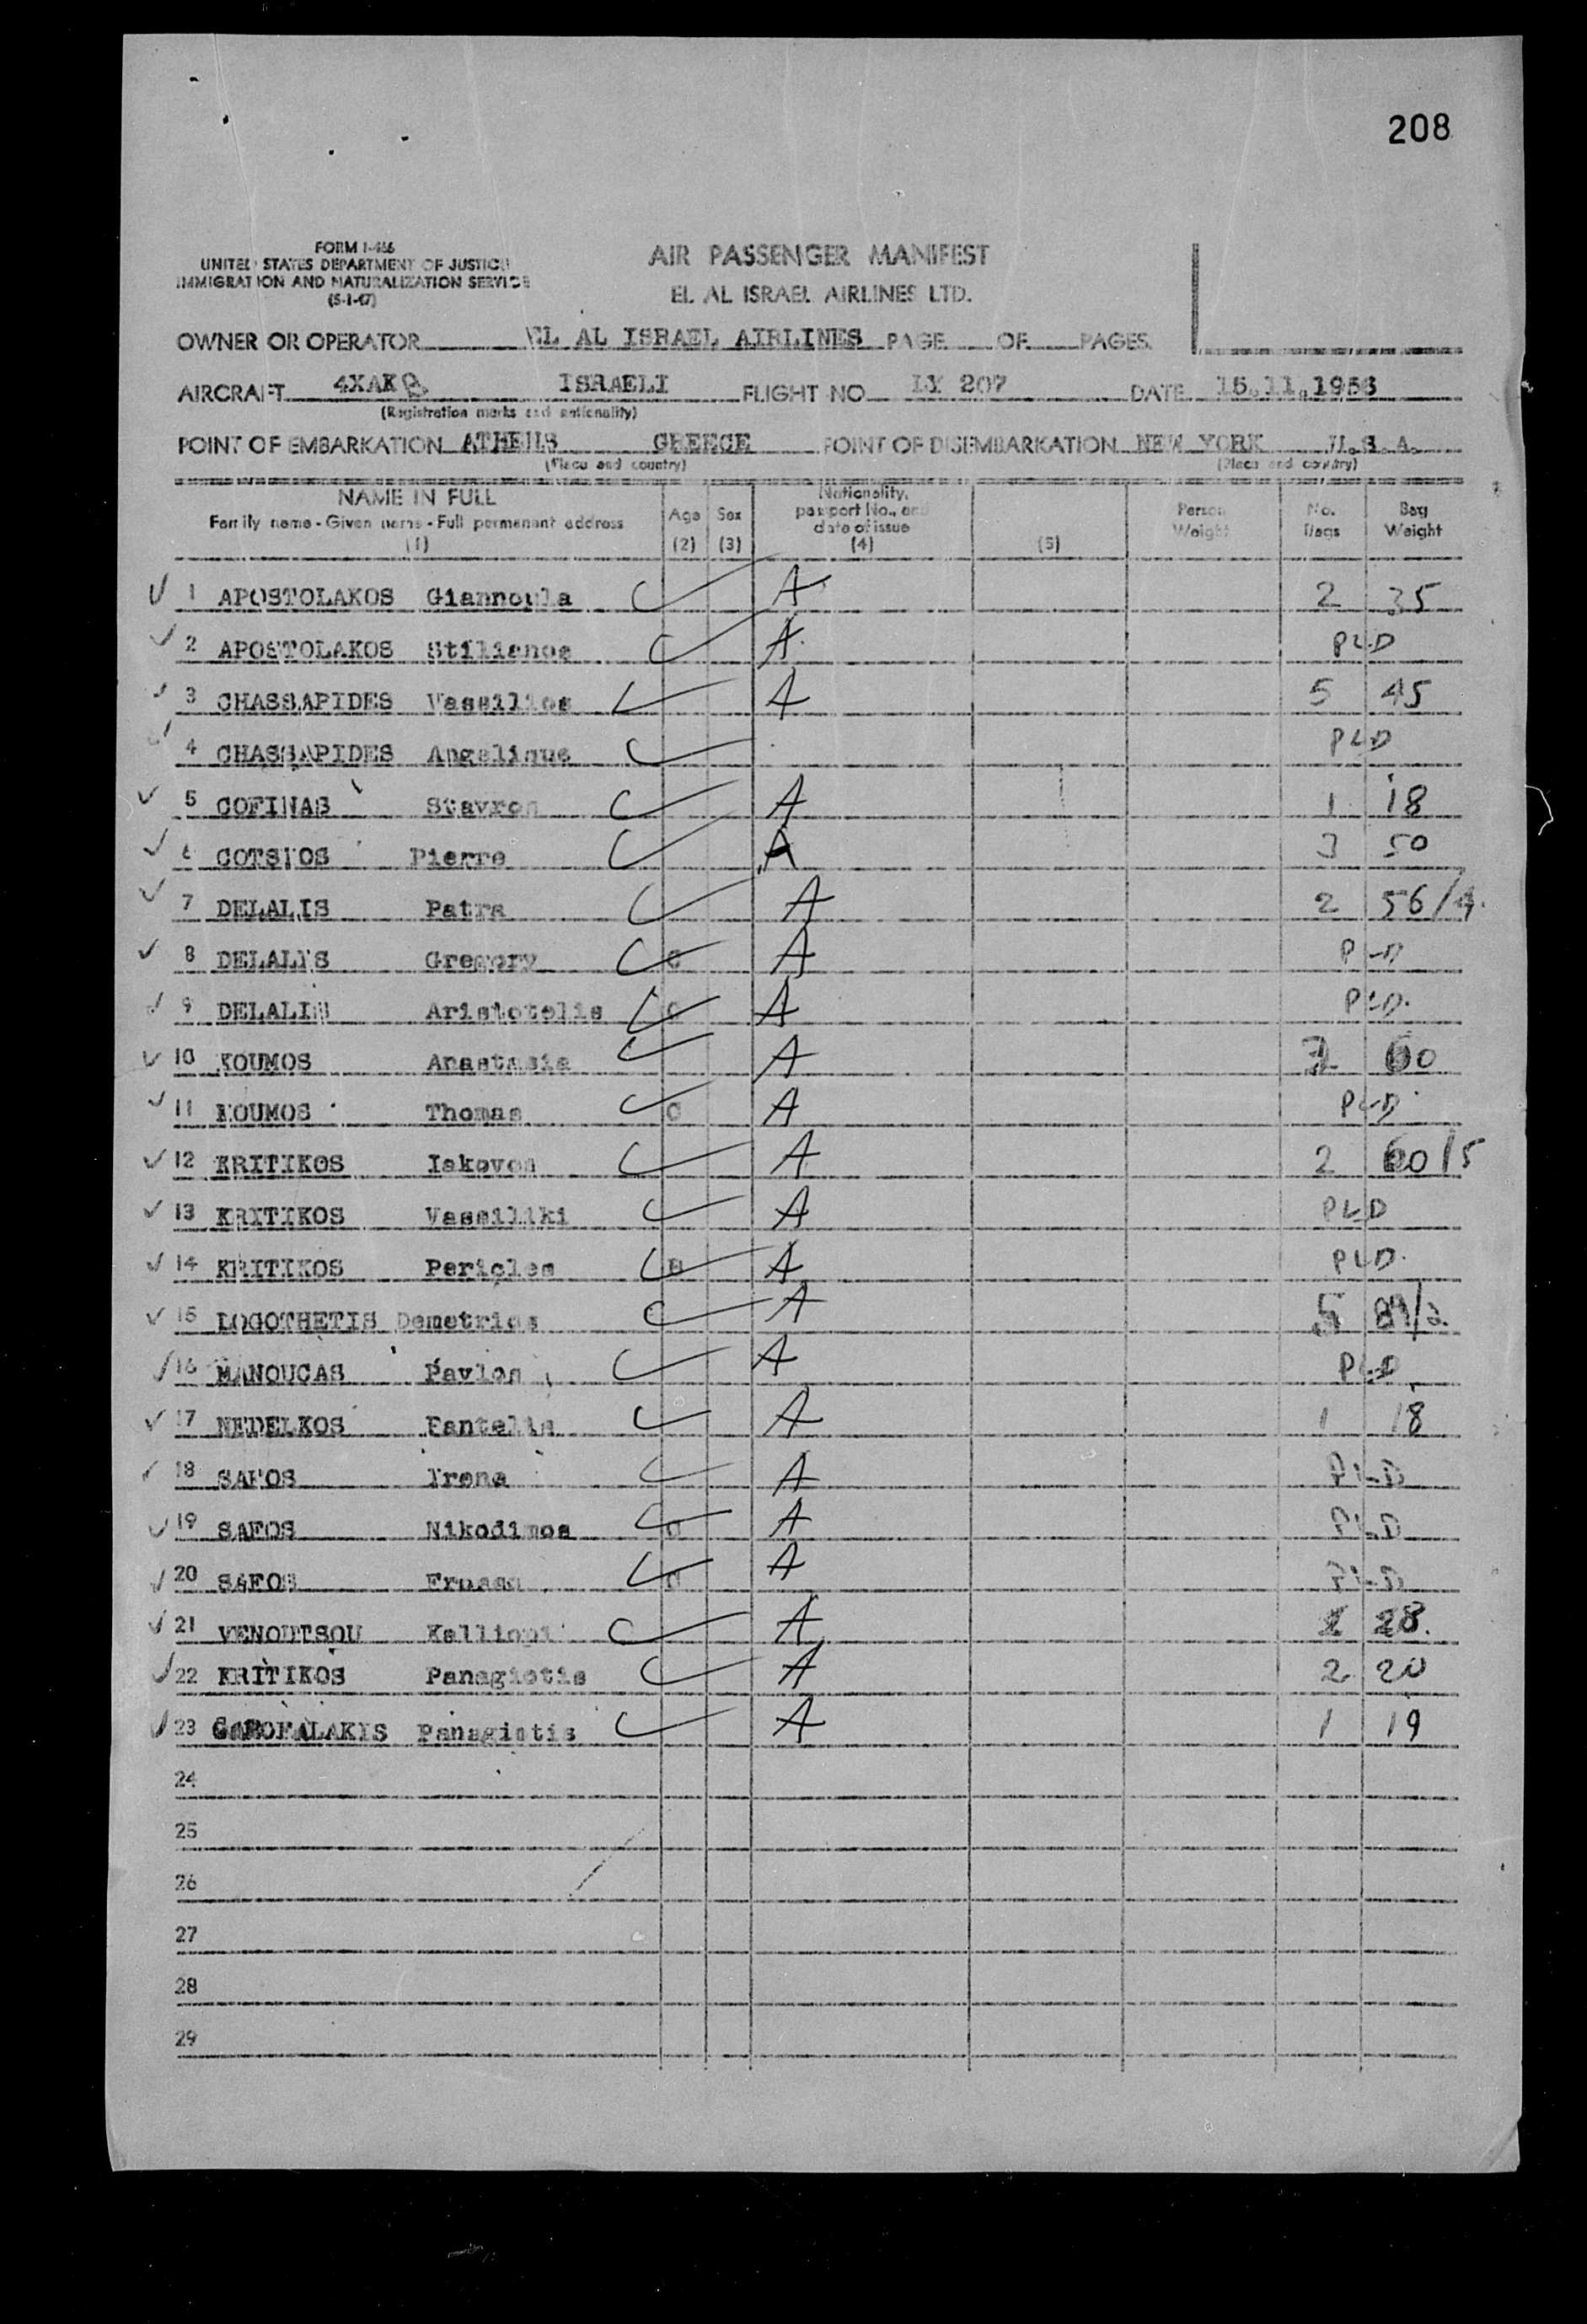 208
FORM I-466
UNITED STATES DEPARTMENT OF JUSTICE
IMMIGRATION AND NATURALIZATION SERVICE
(5-1-47)
AIR PASSENGER MANIFEST
EL AL ISRAEL AIRLINES LTD.
OWNER OR OPERATOR EL AL ISRAEL AIRLINES PAGE OF PAGES
AIRCRAFT 4XAKB ISRAELI FLIGHT NO LY 207 DATE 15.11.1958
(Registration marks and nationality)
POINT OF EMBARKATION ATHENS GREECE POINT OF DISEMBARKATION NEW YORK U.S.A.
(Place and country) (Place and country)
NAME IN FULL Family name - Given name - Full permanent address (1) Age (2) Sex (3) Nationality, passport No., and date of issue (4) (5) Person Weight No. Bags Bag Weight
1 APOSTOLAKOS Giannoula A 2 35
2 APOSTOLAKOS Stilianos A PLD
3 CHASSAPIDES Vassilios A 5 45
4 CHASSAPIDES Angelique PLD
5 COFINAS Stavros A 1 18
6 COTSIOS Pierre A 3 50
7 DELALIS Patra A 2 56/4
8 DELALIS Gregory C A PLD
9 DELALIS Aristotelis C A PLD
10 KOUMOS Anastasia A 60
11 KOUMOS Thomas C A PLD
12 KRITIKOS Iakovos A 2 60/5
13 KRITIKOS Vassiliki A PLD
14 KRITIKOS Pericles A PLD
15 LOGOTHETIS Demetrios A 5 89/2
16 MANOUCAS Pavlos A PLD
17 NEDELKOS Pantelis A 1 18
18 SAFOS Irene A PLD
19 SAFOS Nikodimos C A PLD
20 SAFOS C A PLD
21 VENOUTSOU Kalliopi A 28
22 KRITIKOS Panagiotis A 2 20
23 GAROFALAKIS Panagiotis A 1 19
24
25
26
27
28
29